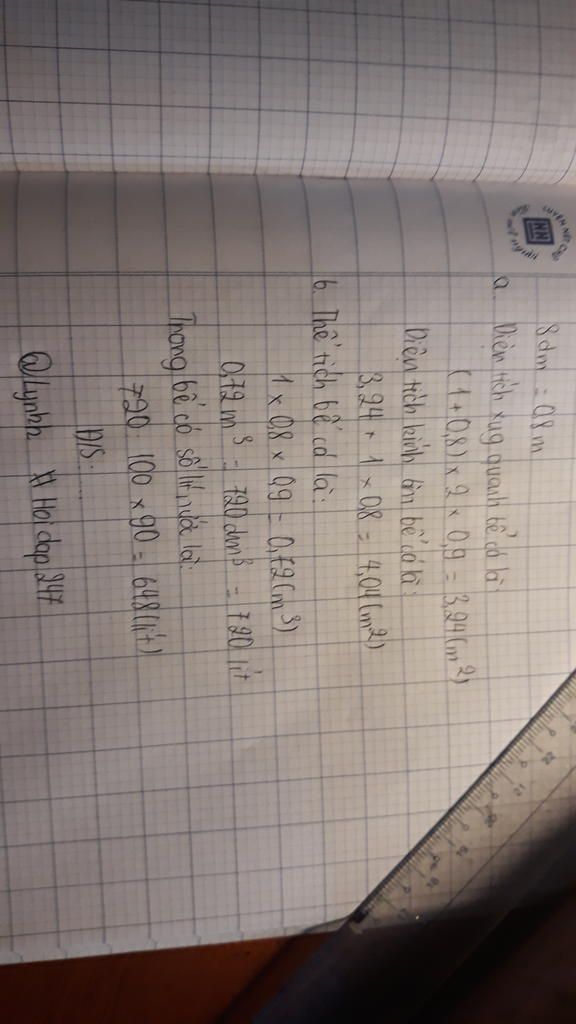 8 dm = 0,8 m
a. Diện tích xug quanh bể cá là:
(1+0,8) x 2 x 0,9 = 3,24 (m2)
Diện tích kính làm bể cá là:
3,24 + 1 x 0,8 = 4,04 (m2)
b. Thể tích bể cá là:
1 x 0,8 x 0,9 = 0,72 (m3)
0,72 m3 = 720 dm3 = 720 lít
Trong bể có số lít nước là:
720 : 100 x 90 = 648 (lít)
Đ/S: .....
@Lynkh Hoidap247